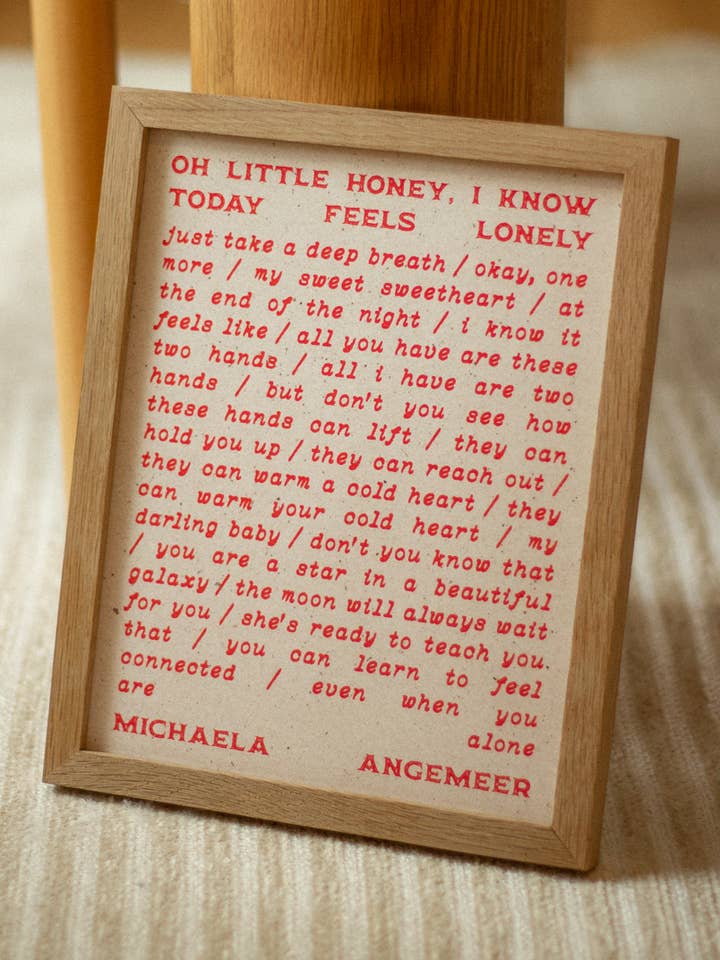 OH LITTLE HONEY, I KNOW
TODAY FEELS LONELY
just take a deep breath / okay, one
more / my sweet sweetheart / at
the end of the night / i know it
feels like / all you have are these
two hands / all i have are two
hands / but don't you see how
these hands can lift / they can
hold you up / they can reach out /
they can warm a cold heart / they
can warm your cold heart / my
darling baby / don't you know that
/ you are a star in a beautiful
galaxy / the moon will always wait
for you / she's ready to teach you.
that / you can learn to feel
connected / even when you
are alone
MICHAELA ANGEMEER